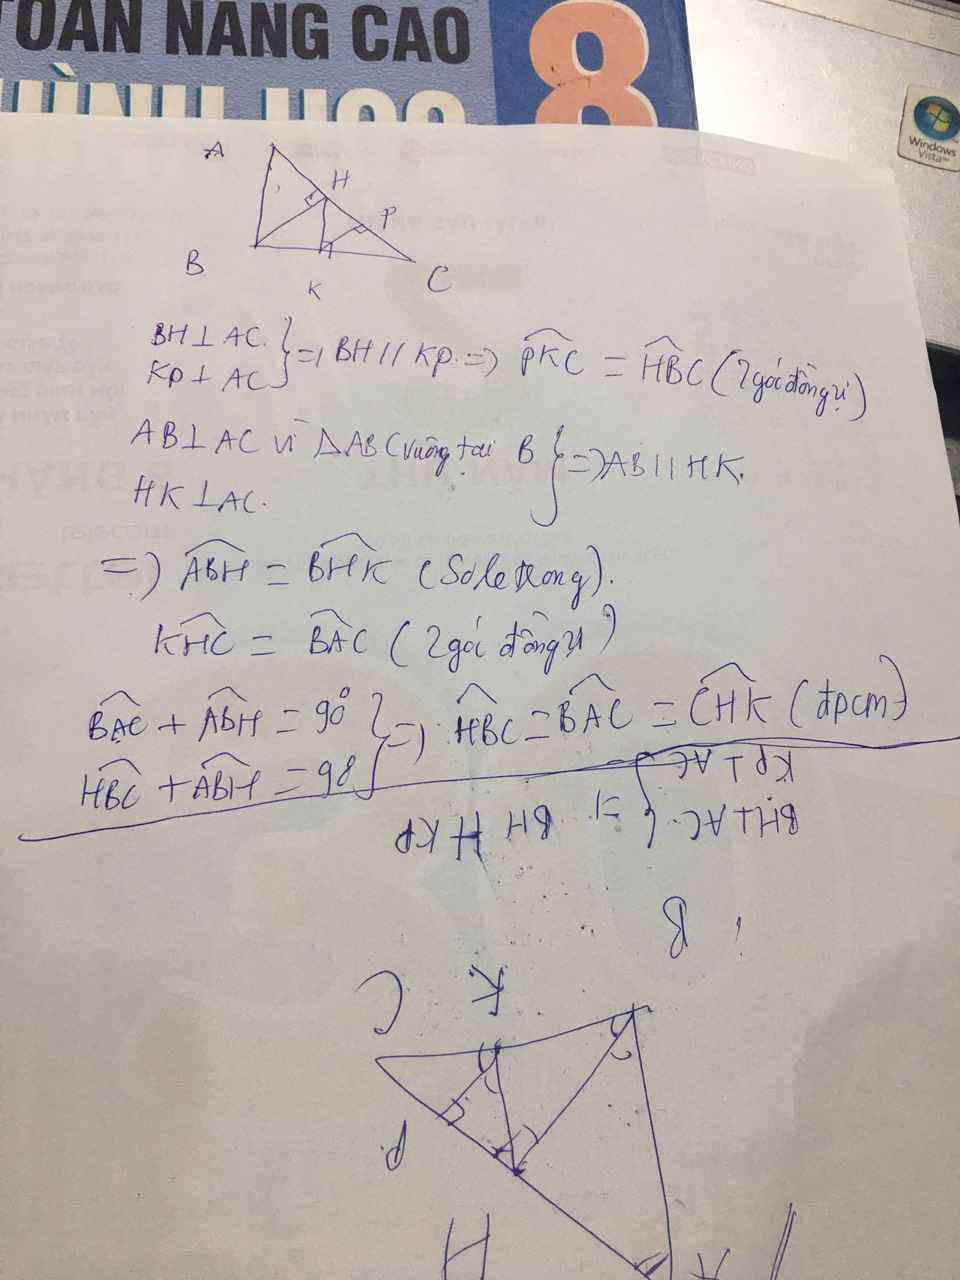 TOÁN NÂNG CAO
HÌNH HỌC
8
Windows
Vista™
A
H
P
B
K
C
BH ⊥ AC.
KP ⊥ AC } => BH // KP. => PKC = HBC (2 góc đồng vị)
AB ⊥ AC vì △ABC vuông tại B
HK ⊥ AC. } => AB // HK.
=> ABH = BHK (So le trong).
KHC = BAC (2 góc đồng vị)
BAC + ABH = 90°
HBC + ABH = 90 } => HBC = BAC = CHK (đpcm)
BH ⊥ AC.
KP ⊥ AC } => BH // KP
B
K
C
P
H
A